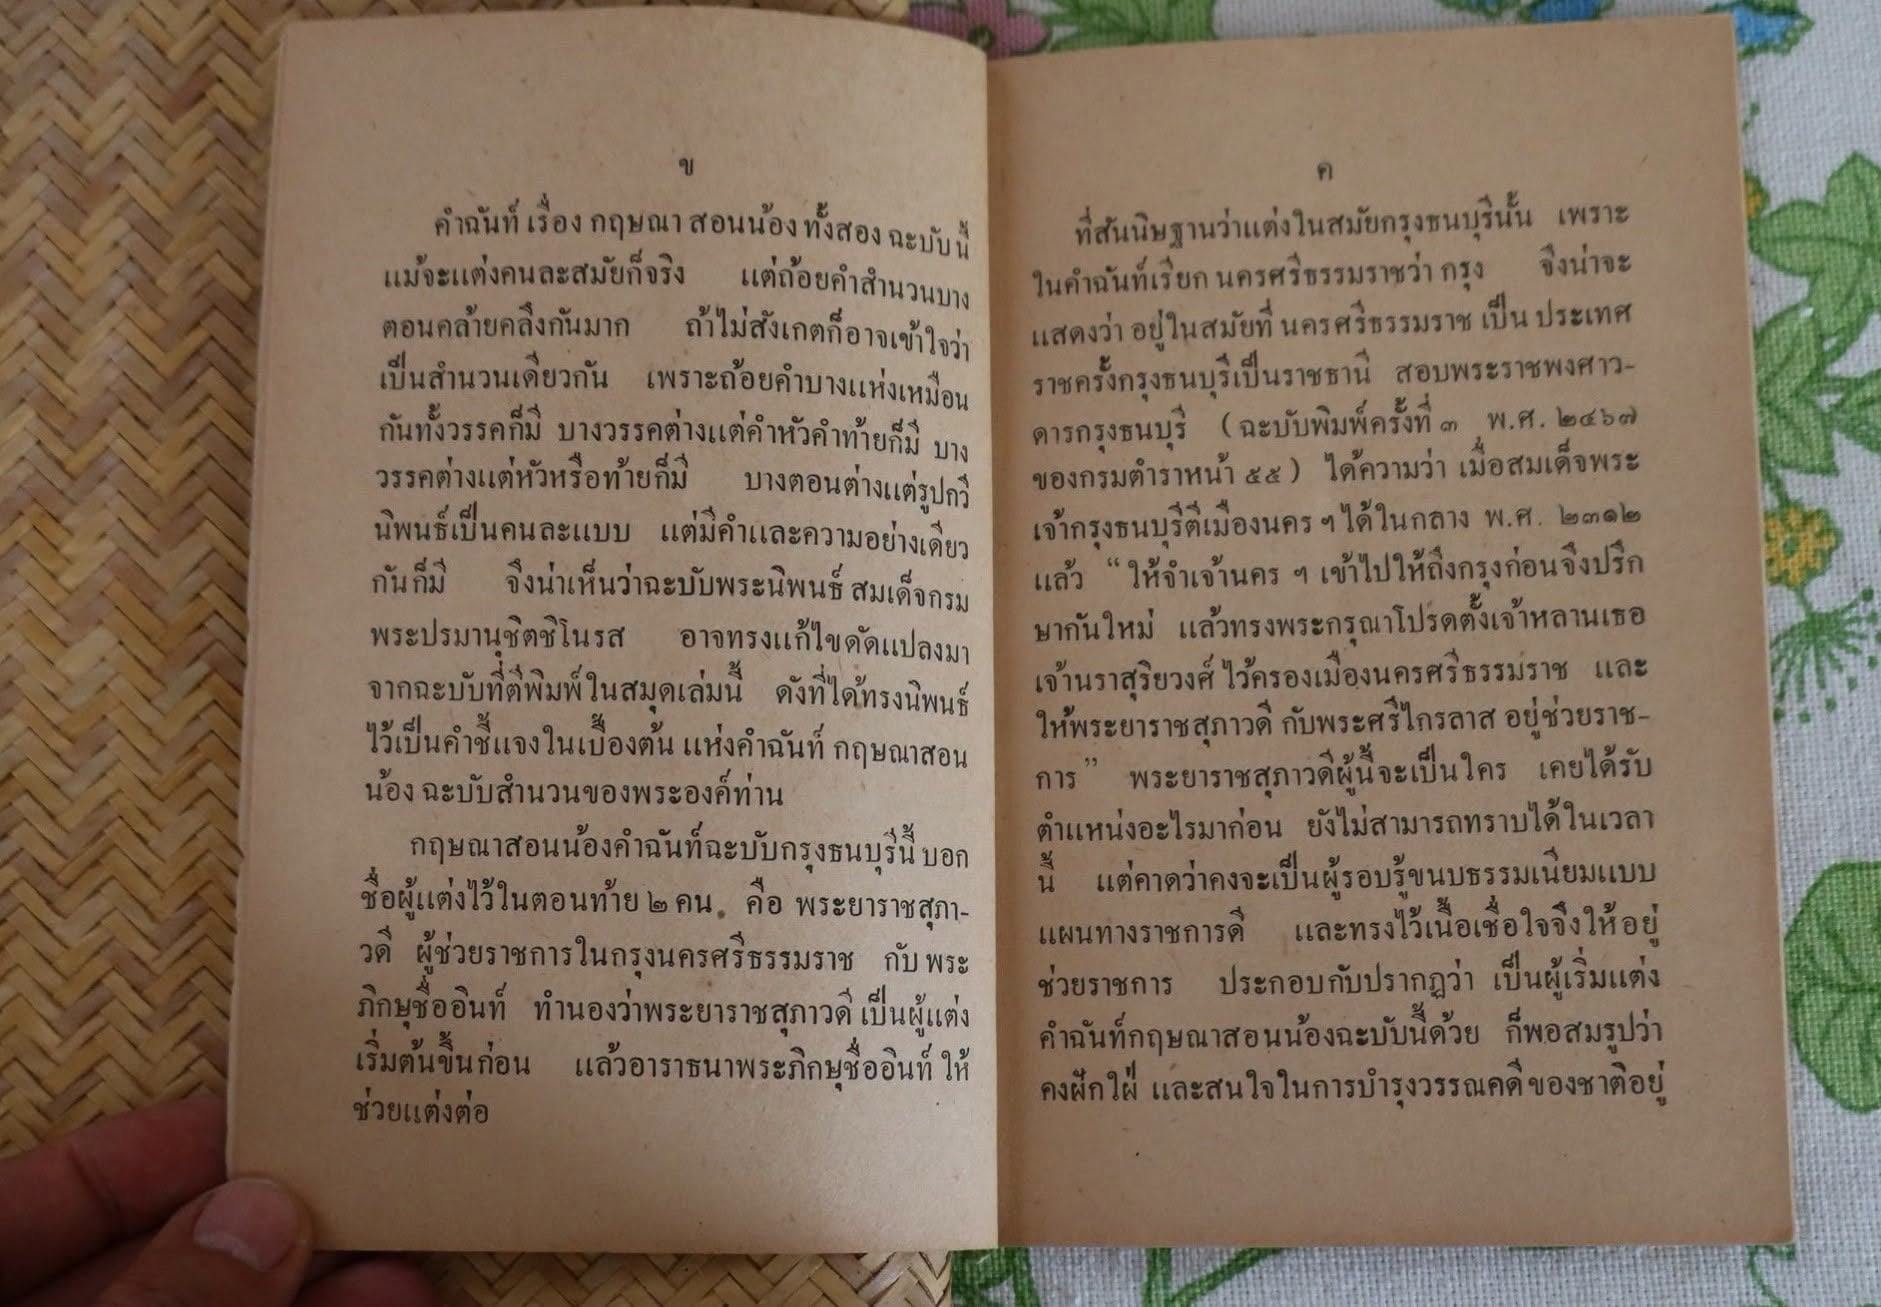 ข
คำฉันท์ เรื่อง กฤษณา สอนน้อง ทั้งสอง ฉะบับนี้
แม้จะแต่งคนละสมัยก็จริง แต่ถ้อยคำสำนวนบาง
ตอนคล้ายคลึงกันมาก ถ้าไม่สังเกตก็อาจเข้าใจว่า
เป็นสำนวนเดียวกัน เพราะถ้อยคำบางแห่งเหมือน
กันทั้งวรรคก็มี บางวรรคต่างแต่คำหัวคำท้ายก็มี บาง
วรรคต่างแต่หัวหรือท้ายก็มี บางตอนต่างแต่รูปกวี
นิพนธ์เป็นคนละแบบ แต่มีคำและความอย่างเดียว
กันก็มี จึงน่าเห็นว่าฉะบับพระนิพนธ์ สมเด็จกรม
พระปรมานุชิตชิโนรส อาจทรงแก้ไขดัดแปลงมา
จากฉะบับที่ตีพิมพ์ในสมุดเล่มนี้ ดังที่ได้ทรงนิพนธ์
ไว้เป็นคำชี้แจงในเบื้องต้น แห่งคำฉันท์ กฤษณาสอน
น้อง ฉะบับสำนวนของพระองค์ท่าน
กฤษณาสอนน้องคำฉันท์ฉะบับกรุงธนบุรีนี้ บอก
ชื่อผู้แต่งไว้ในตอนท้าย ๒ คน คือ พระยาราชสุภา-
วดี ผู้ช่วยราชการในกรุงนครศรีธรรมราช กับ พระ
ภิกษุชื่ออินท์ ทำนองว่าพระยาราชสุภาวดี เป็นผู้แต่ง
เริ่มต้นขึ้นก่อน แล้วอาราธนาพระภิกษุชื่ออินท์ ให้
ช่วยแต่งต่อ
ค
ที่สันนิษฐานว่าแต่งในสมัยกรุงธนบุรีนั้น เพราะ
ในคำฉันท์เรียก นครศรีธรรมราชว่า กรุง จึงน่าจะ
แสดงว่า อยู่ในสมัยที่ นครศรีธรรมราช เป็น ประเทศ
ราชครั้งกรุงธนบุรีเป็นราชธานี สอบพระราชพงศาว-
ดารกรุงธนบุรี (ฉะบับพิมพ์ครั้งที่ ๓ พ.ศ. ๒๔๖๗
ของกรมตำราหน้า ๕๕) ได้ความว่า เมื่อสมเด็จพระ
เจ้ากรุงธนบุรีตีเมืองนคร ฯ ได้ในกลาง พ.ศ. ๒๓๑๒
แล้ว “ ให้จำเจ้านคร ฯ เข้าไปให้ถึงกรุงก่อนจึงปรึก
ษากันใหม่ แล้วทรงพระกรุณาโปรดตั้งเจ้าหลานเธอ
เจ้านราสุริยวงศ์ ไว้ครองเมืองนครศรีธรรมราช และ
ให้พระยาราชสุภาวดี กับพระศรีไกรลาส อยู่ช่วยราช-
การ ” พระยาราชสุภาวดีผู้นี้จะเป็นใคร เคยได้รับ
ตำแหน่งอะไรมาก่อน ยังไม่สามารถทราบได้ในเวลา
นี้ แต่คาดว่าคงจะเป็นผู้รอบรู้ขนบธรรมเนียมแบบ
แผนทางราชการดี และทรงไว้เนื้อเชื่อใจจึงให้อยู่
ช่วยราชการ ประกอบกับปรากฏว่า เป็นผู้เริ่มแต่ง
คำฉันท์กฤษณาสอนน้องฉะบับนี้ด้วย ก็พอสมรูปว่า
คงฝักใฝ่ และสนใจในการบำรุงวรรณคดีของชาติอยู่